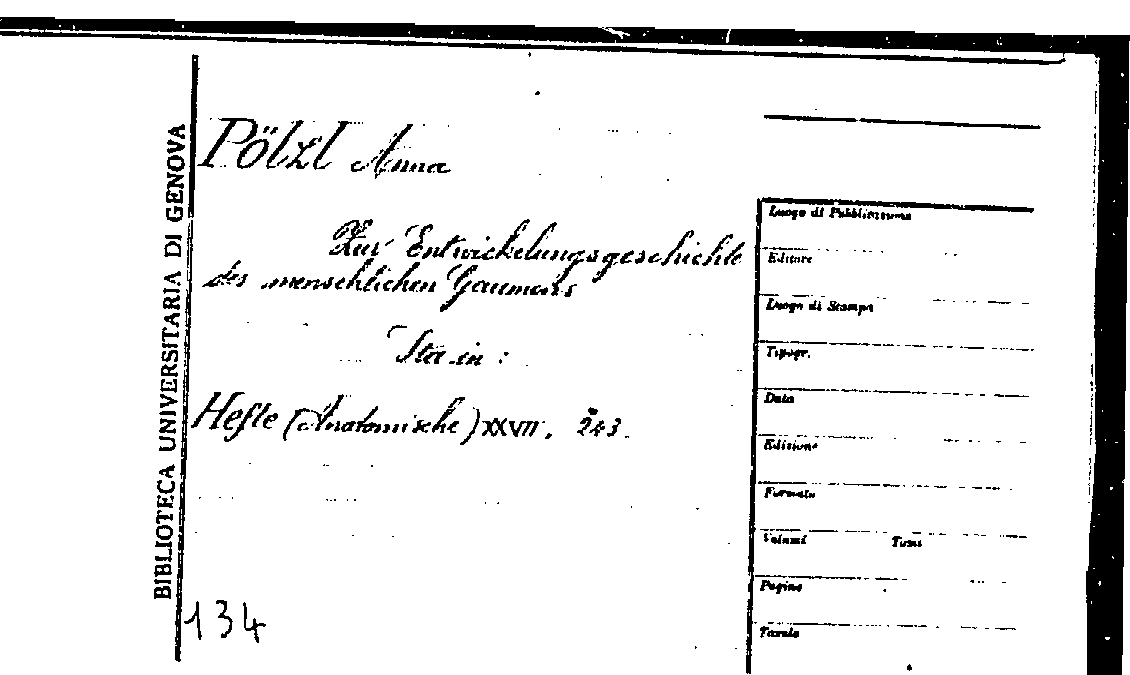 BIBLIOTECA UNIVERSITARIA DI GENOVA
Pölzl Anna
Zur Entwickelungsgeschichte
des menschlichen Gaumens
Sta in :
Hefte (Anatomische) XXVII, 243.
134
Luogo di Pubblicazione
Editore
Luogo di Stampa
Tipogr.
Data
Edizione
Formato
Volumi Tomi
Pagine
Tavole